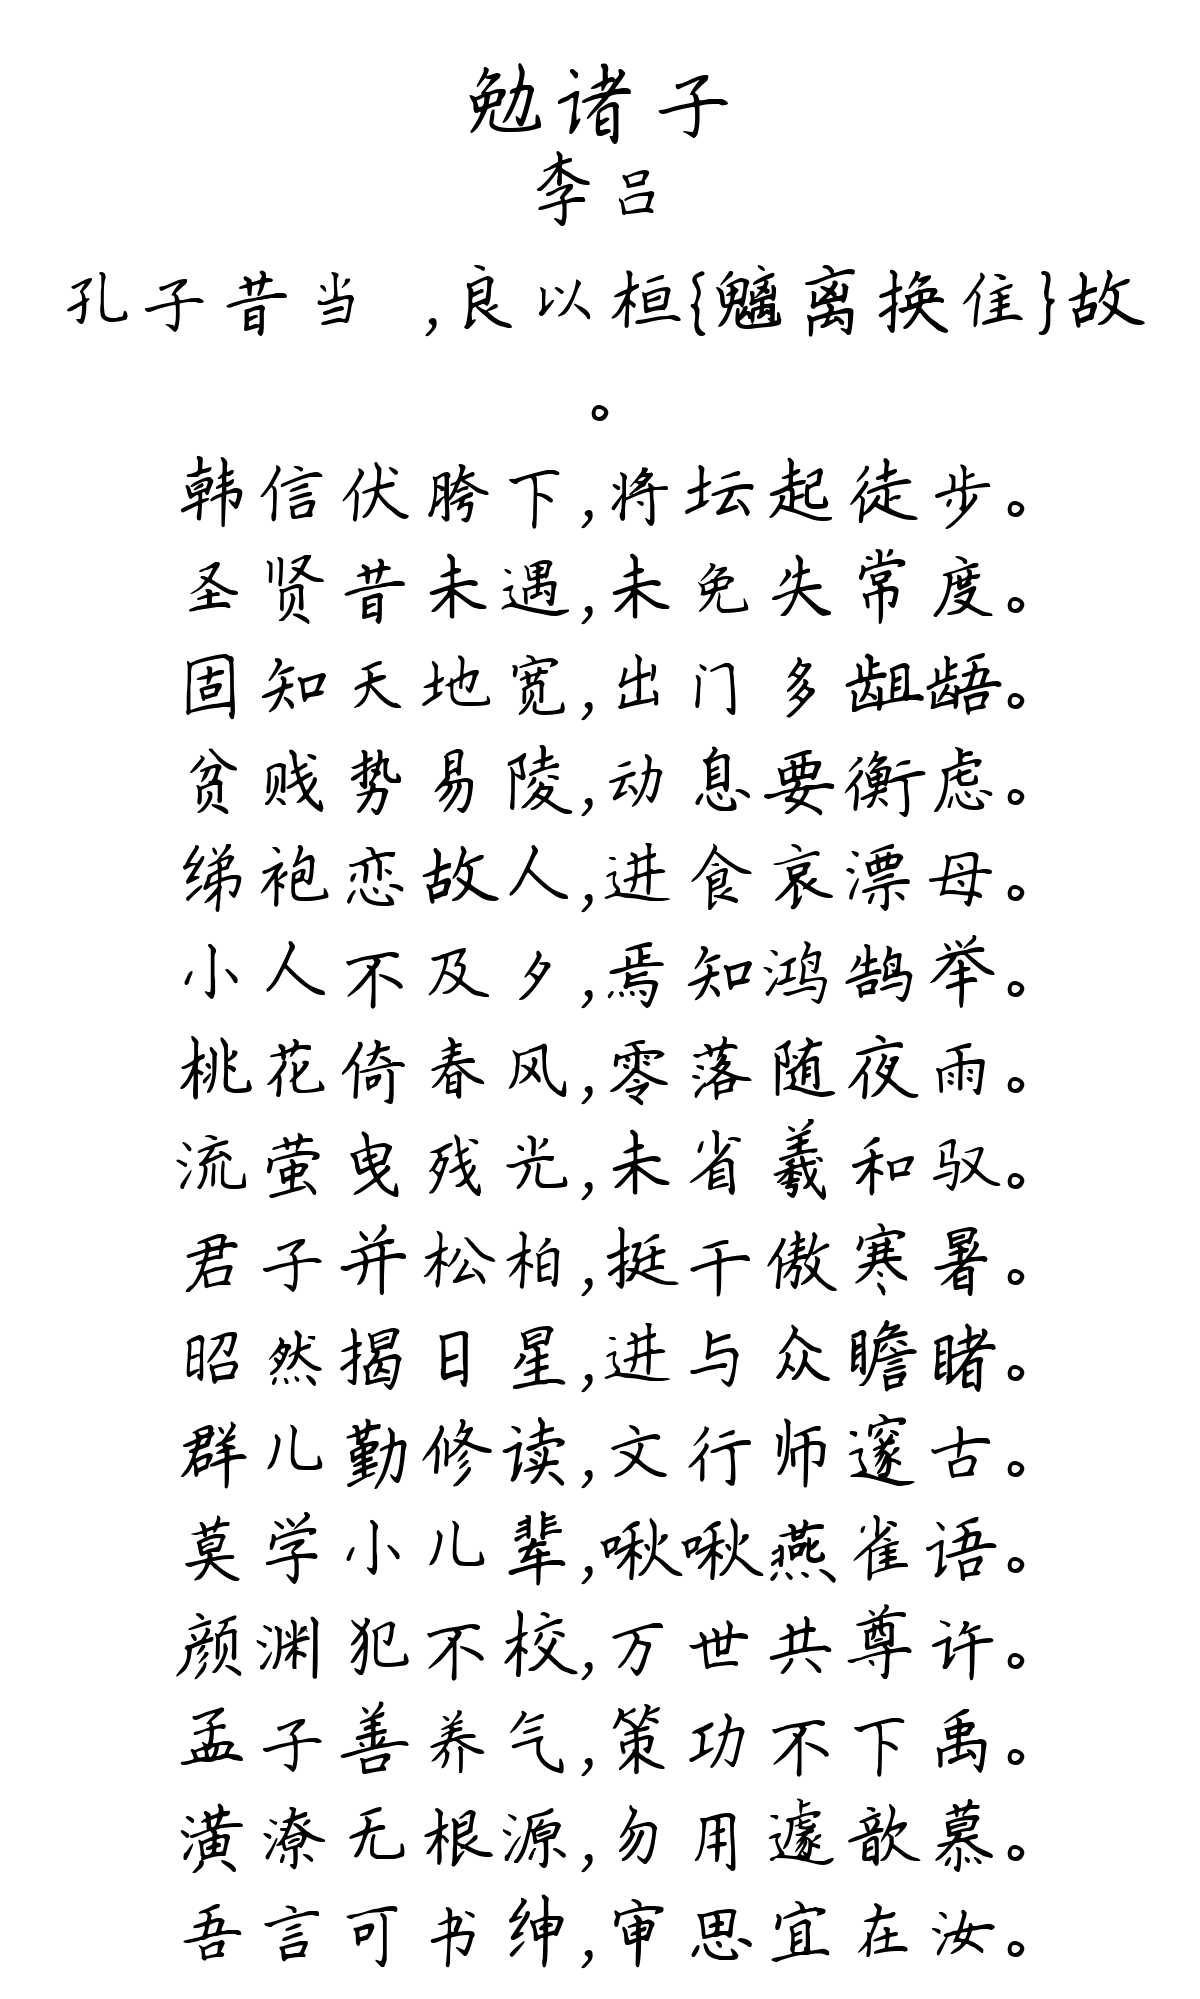 勉诸子
李吕
孔子昔当 ,良以桓{魑离换隹}故
。
韩信伏胯下,将坛起徒步。
圣贤昔未遇,未免失常度。
固知天地宽,出门多龃龉。
贫贱势易陵,动息要衡虑。
绨袍恋故人,进食哀漂母。
小人不及夕,焉知鸿鹄举。
桃花倚春风,零落随夜雨。
流萤曳残光,未省羲和驭。
君子并松柏,挺干傲寒暑。
昭然揭日星,进与众瞻睹。
群儿勤修读,文行师邃古。
莫学小儿辈,啾啾燕雀语。
颜渊犯不校,万世共尊许。
孟子善养气,策功不下禹。
潢潦无根源,勿用遽歆慕。
吾言可书绅,审思宜在汝。